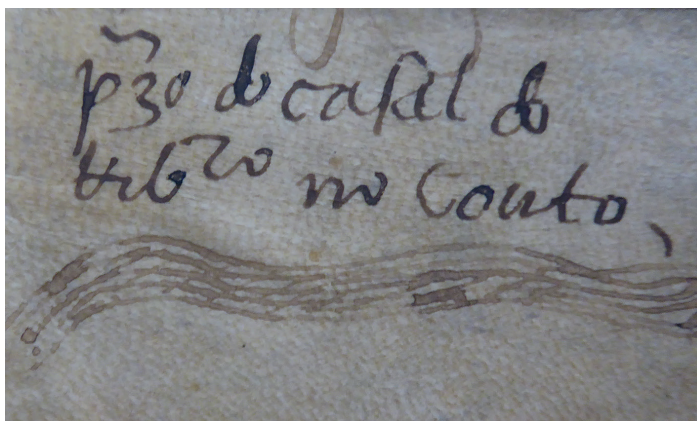 p̃zo do casal do
trib.ro no Couto,